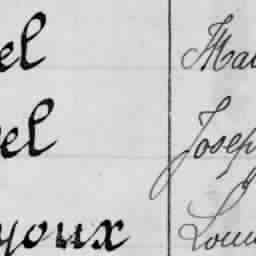 el Mau
el Josep
youx Loui